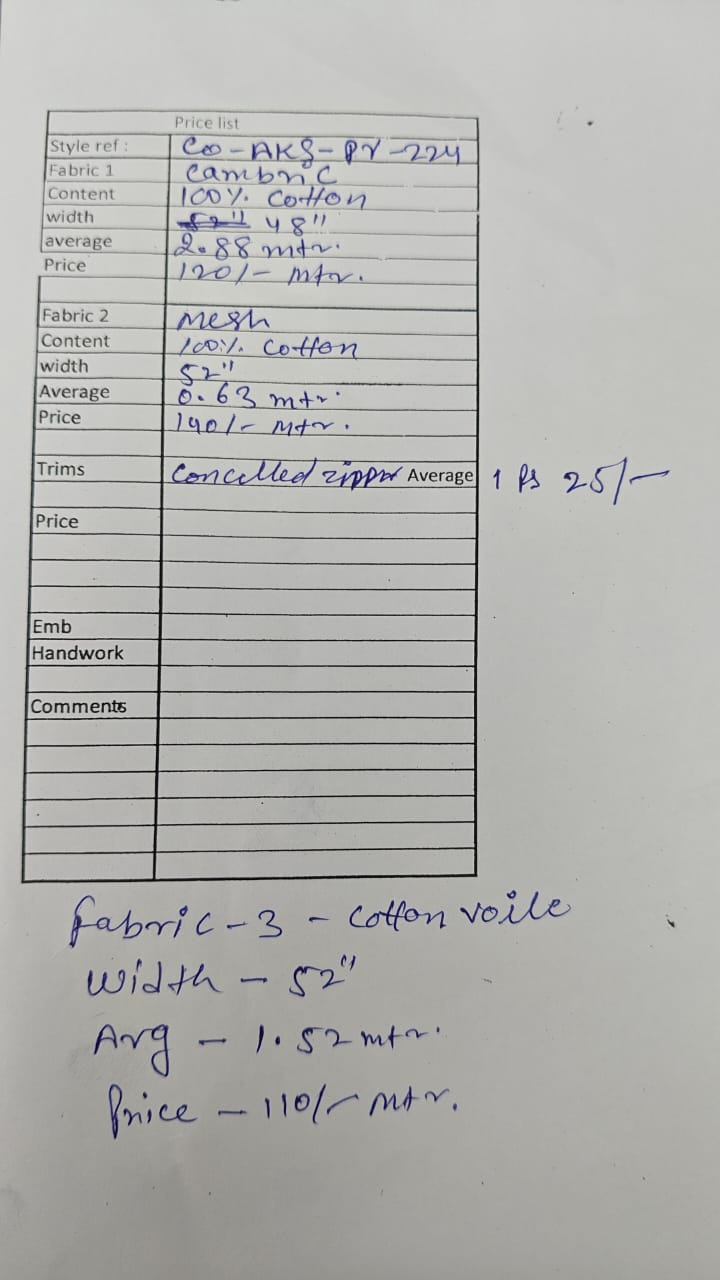 Price list
Style ref : Co-AKS-PV-224
Fabric 1 Cambric
Content 100% Cotton
width 52" 48"
average 2.88 mtr.
Price 120/- mtr.
Fabric 2 Mesh
Content 100% Cotton
width 52"
Average 0.63 mtr.
Price 190/- Mtr.
Trims Concelled zipper Average 1 Ps 25/-
Price
Emb
Handwork
Comments
Fabric-3 - Cotton voile
Width - 52"
Avg - 1.52 mtr.
Price - 110/- Mtr.